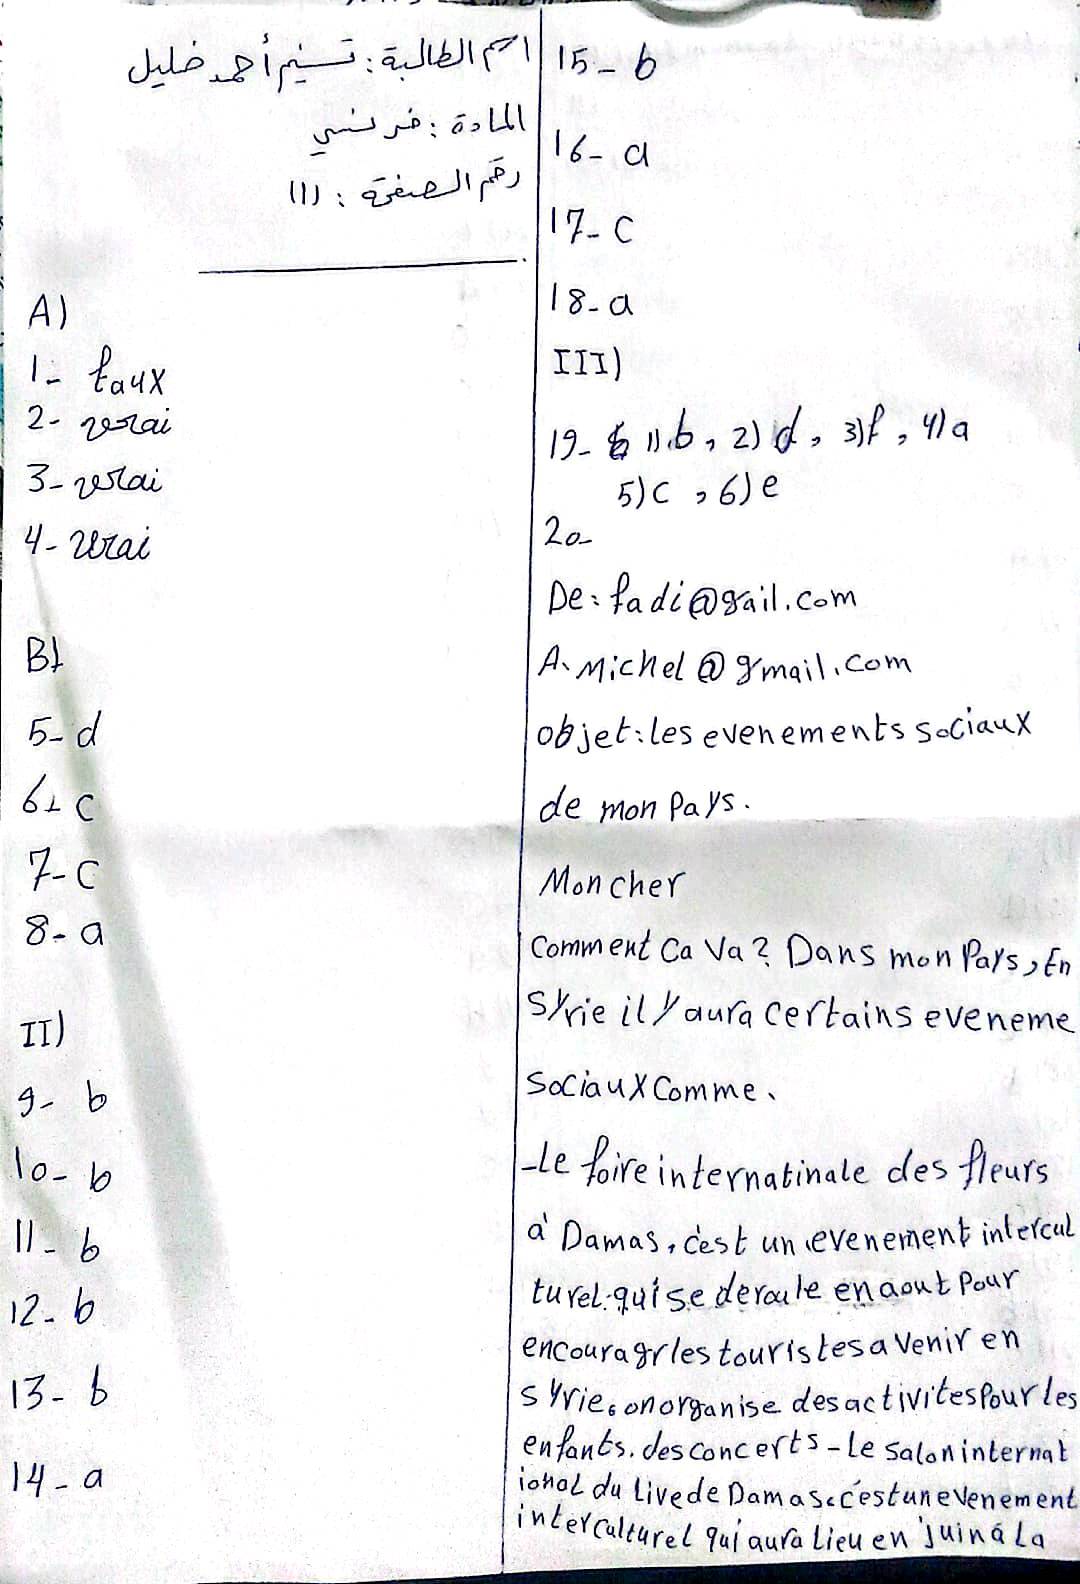 اسم الطالبة: تسنيم أحمد خليل
المادة: فرنسي
رقم الصفحة: (1)
A)
1- faux
2- vrai
3- vrai
4- vrai
B)
5- d
6- c
7- C
8- a
II)
9- b
10- b
11- b
12- b
13- b
14- a
15- b
16- a
17- C
18- a
III)
19- 1).b, 2) d, 3)f, 4)a
5)C, 6)e
20-
De: fadi@gail.com
A. Michel@gmail.com
objet: les evenements sociaux
de mon Pays.
Mon cher
Comment Ca Va? Dans mon Pays, En
Syrie il y aura certains eveneme
Sociaux Comme.
-Le foire internatinale des fleurs
à Damas, c'est un evenement intercul
turel. qui se deroule en aout Pour
encouragr les touristes a Venir en
syrie. on organise des activites Pour les
enfants. des concerts - Le salon internat
ional du Livede Damas. c'est un evenement
interculturel qui aura Lieu en Juin á La